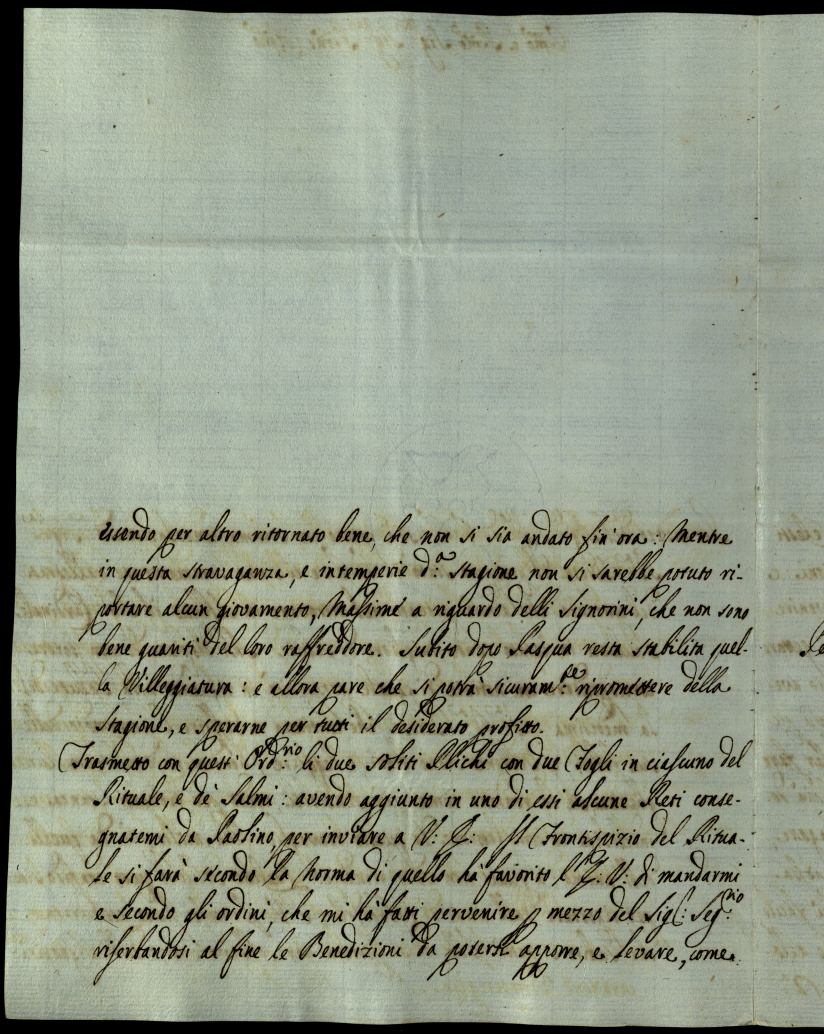 essendo per altro ritornato bene, che non si sia andato fin'ora: Mentre
in questa stravaganza, e intemperie d.a Stagione non si sarebbe potuto ri-
portare alcun giovamento, Massime a riguardo delli Signorini, che non sono
bene guariti del loro raffreddore. Subito dopo Pasqua resta stabilita quel-
la Villeggiatura: e allora pare che si potrà sicuram.te ripromettere della
Stagione, e sperarne per tutti il desiderato profitto.
Trasmetto con quest' Ord.rio li due soliti Plichi con due Fogli in ciascuno del
Rituale, e de' Salmi: avendo aggiunto in uno di essi alcune Reti conse-
gnatemi da Paolino, per inviare a V: Il Frontispizio del Ritua-
le si farà secondo la Norma di quello ha favorito l' V: di mandarmi
e secondo gli ordini, che mi hà fatti pervenire p mezzo del Sig.: Seg.rio
riserbandosi al fine le Benedizioni da potersi apporre, e levare, come